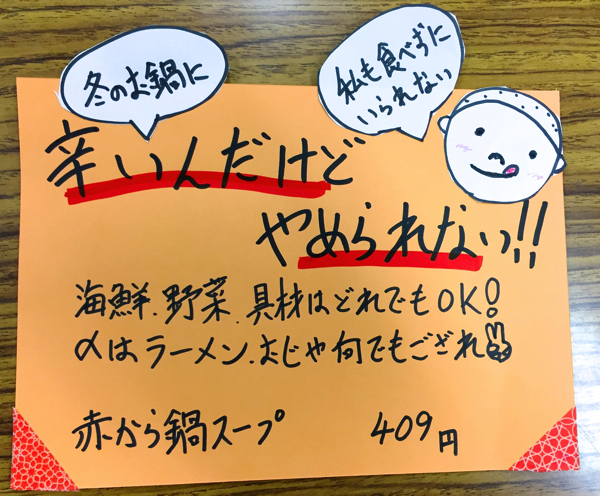 冬のお鍋に
私も食べずに
いられない
辛いんだけど
やめられない!!
海鮮.野菜.具材はどれでもOK!
〆はラーメン.おじや何でもござれ
赤から鍋スープ 409円